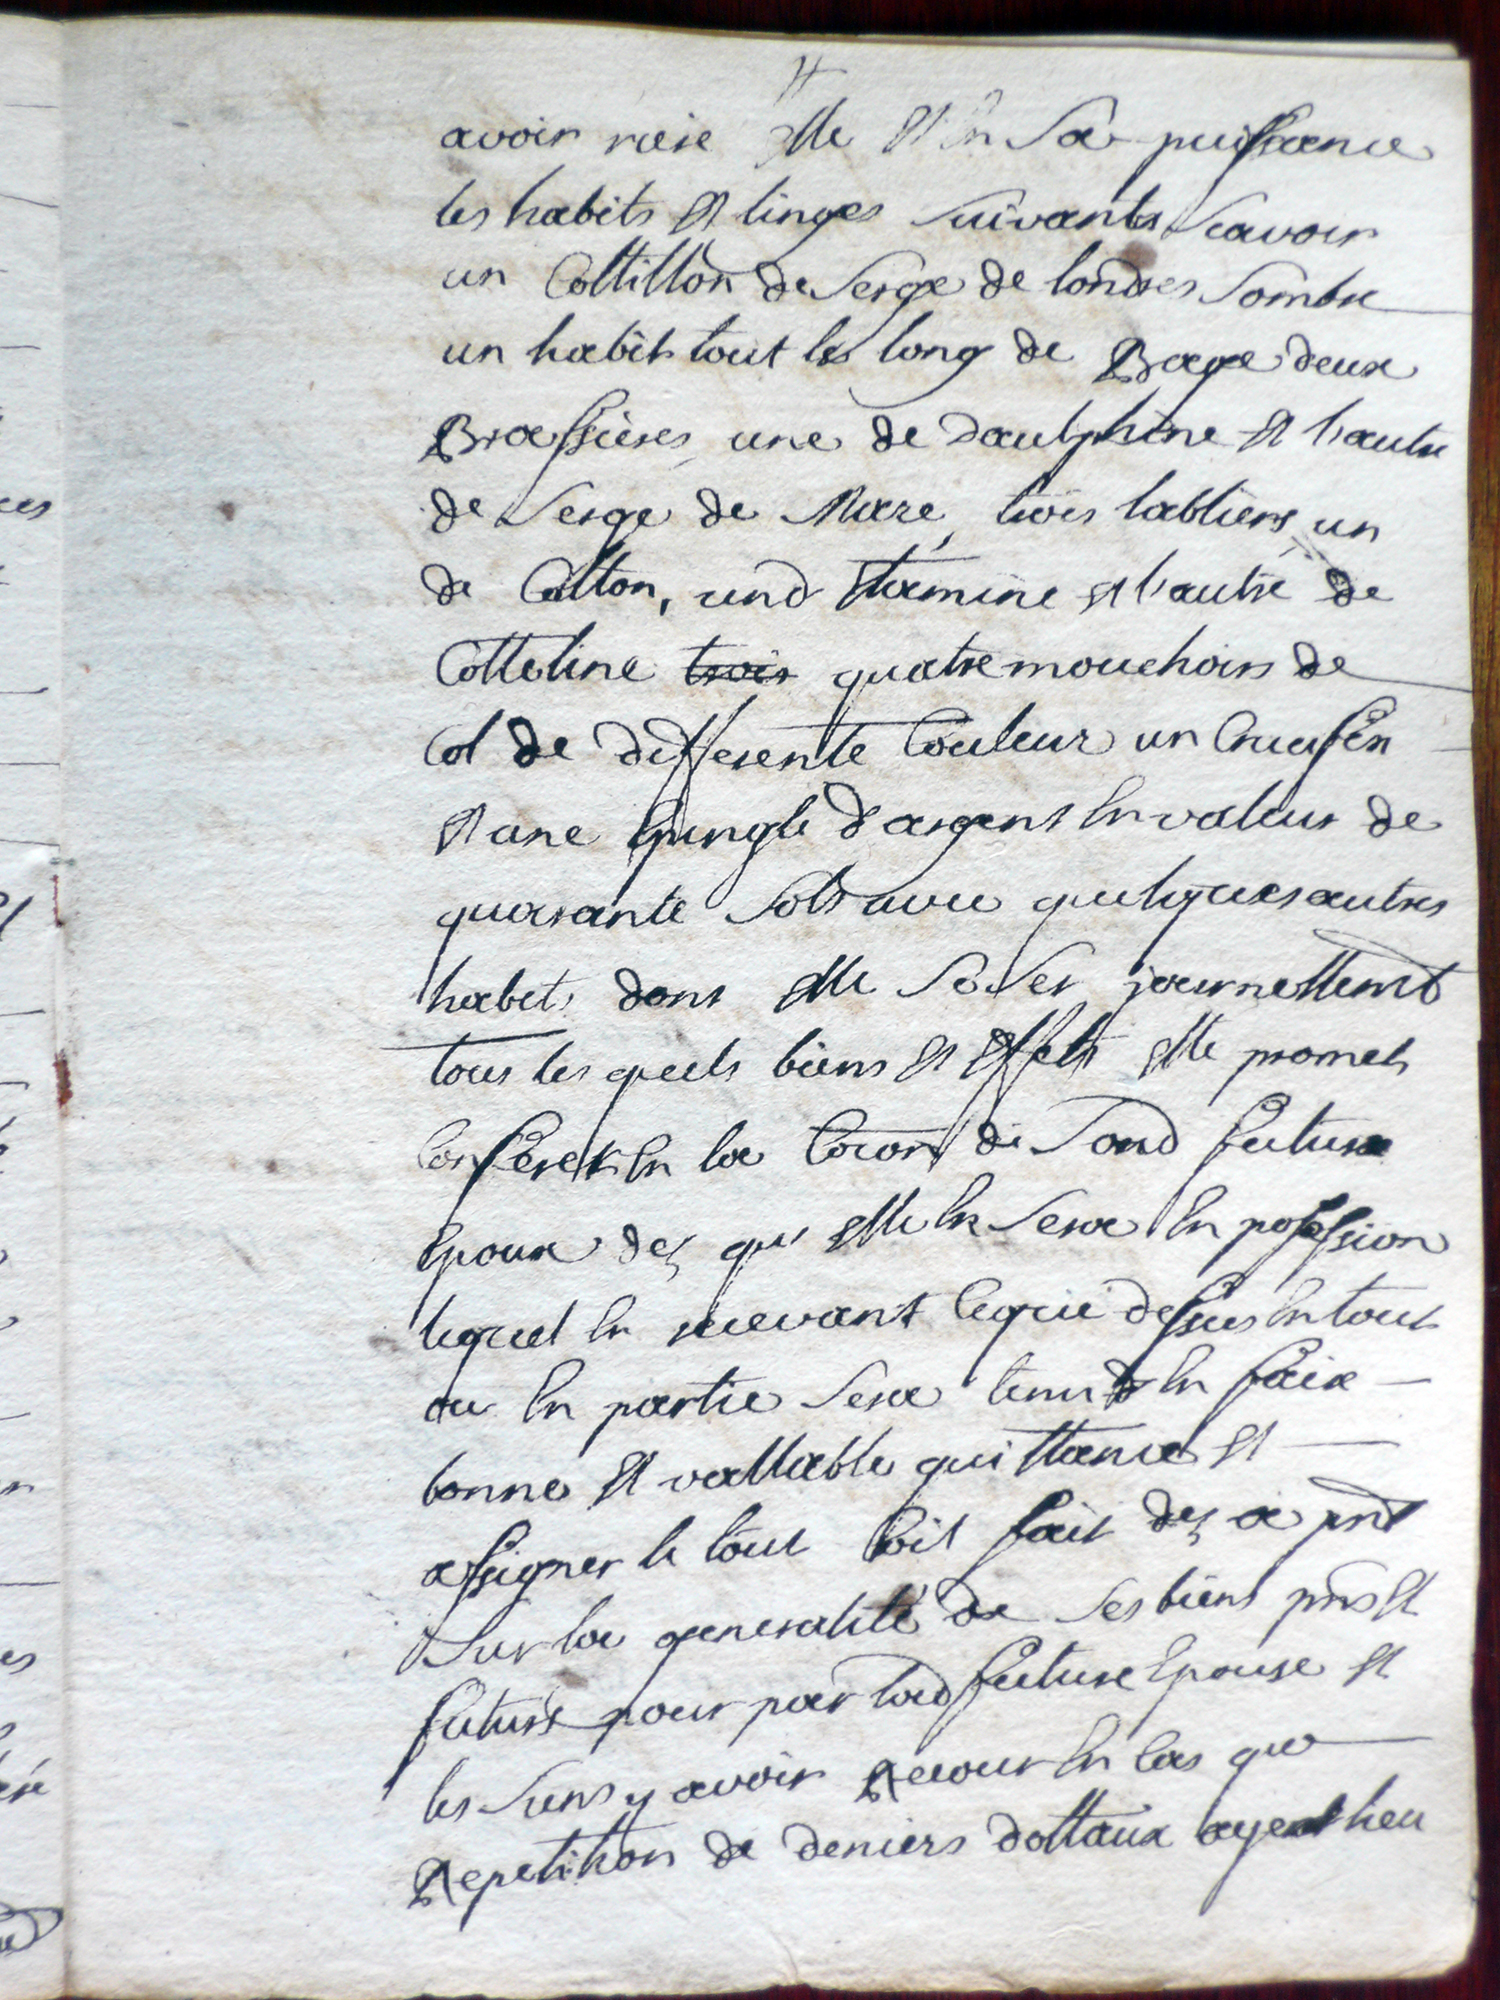 avoir rière elle et en sa puissance
les habits et linges suivants scavoir
un Cottillon de Serge de londres Sombre
un habit tout le long de Rage deux
Brassieres, une de dauphine et l'autre
de Serge de Mare, trois tabliers un
de Cotton, un d'Etamine et l'autre de
Cotteline trois quatre mouchoirs de
Col de differente Couleur un Crucifix
et une Epingle d'argent En valeur de
quarante Sols avec quelques autres
habits dont elle se ser journellemt
tous les quels biens et effets elle promet
Conferer En la Coion de Sond futur
Epoux des qu' elle En Sera En possession
lequel En recevant Ce que dessus En tout
ou En partie Sera tenu d'En faire
bonne et vallable quittance et
assigner le tout Soit fait des a pnt
Sur la generalité de ses biens pnts et
futurs pour par lad future Epouse et
les siens y avoir Recour En Cas que
Repetition de deniers dottaux ayent lieu